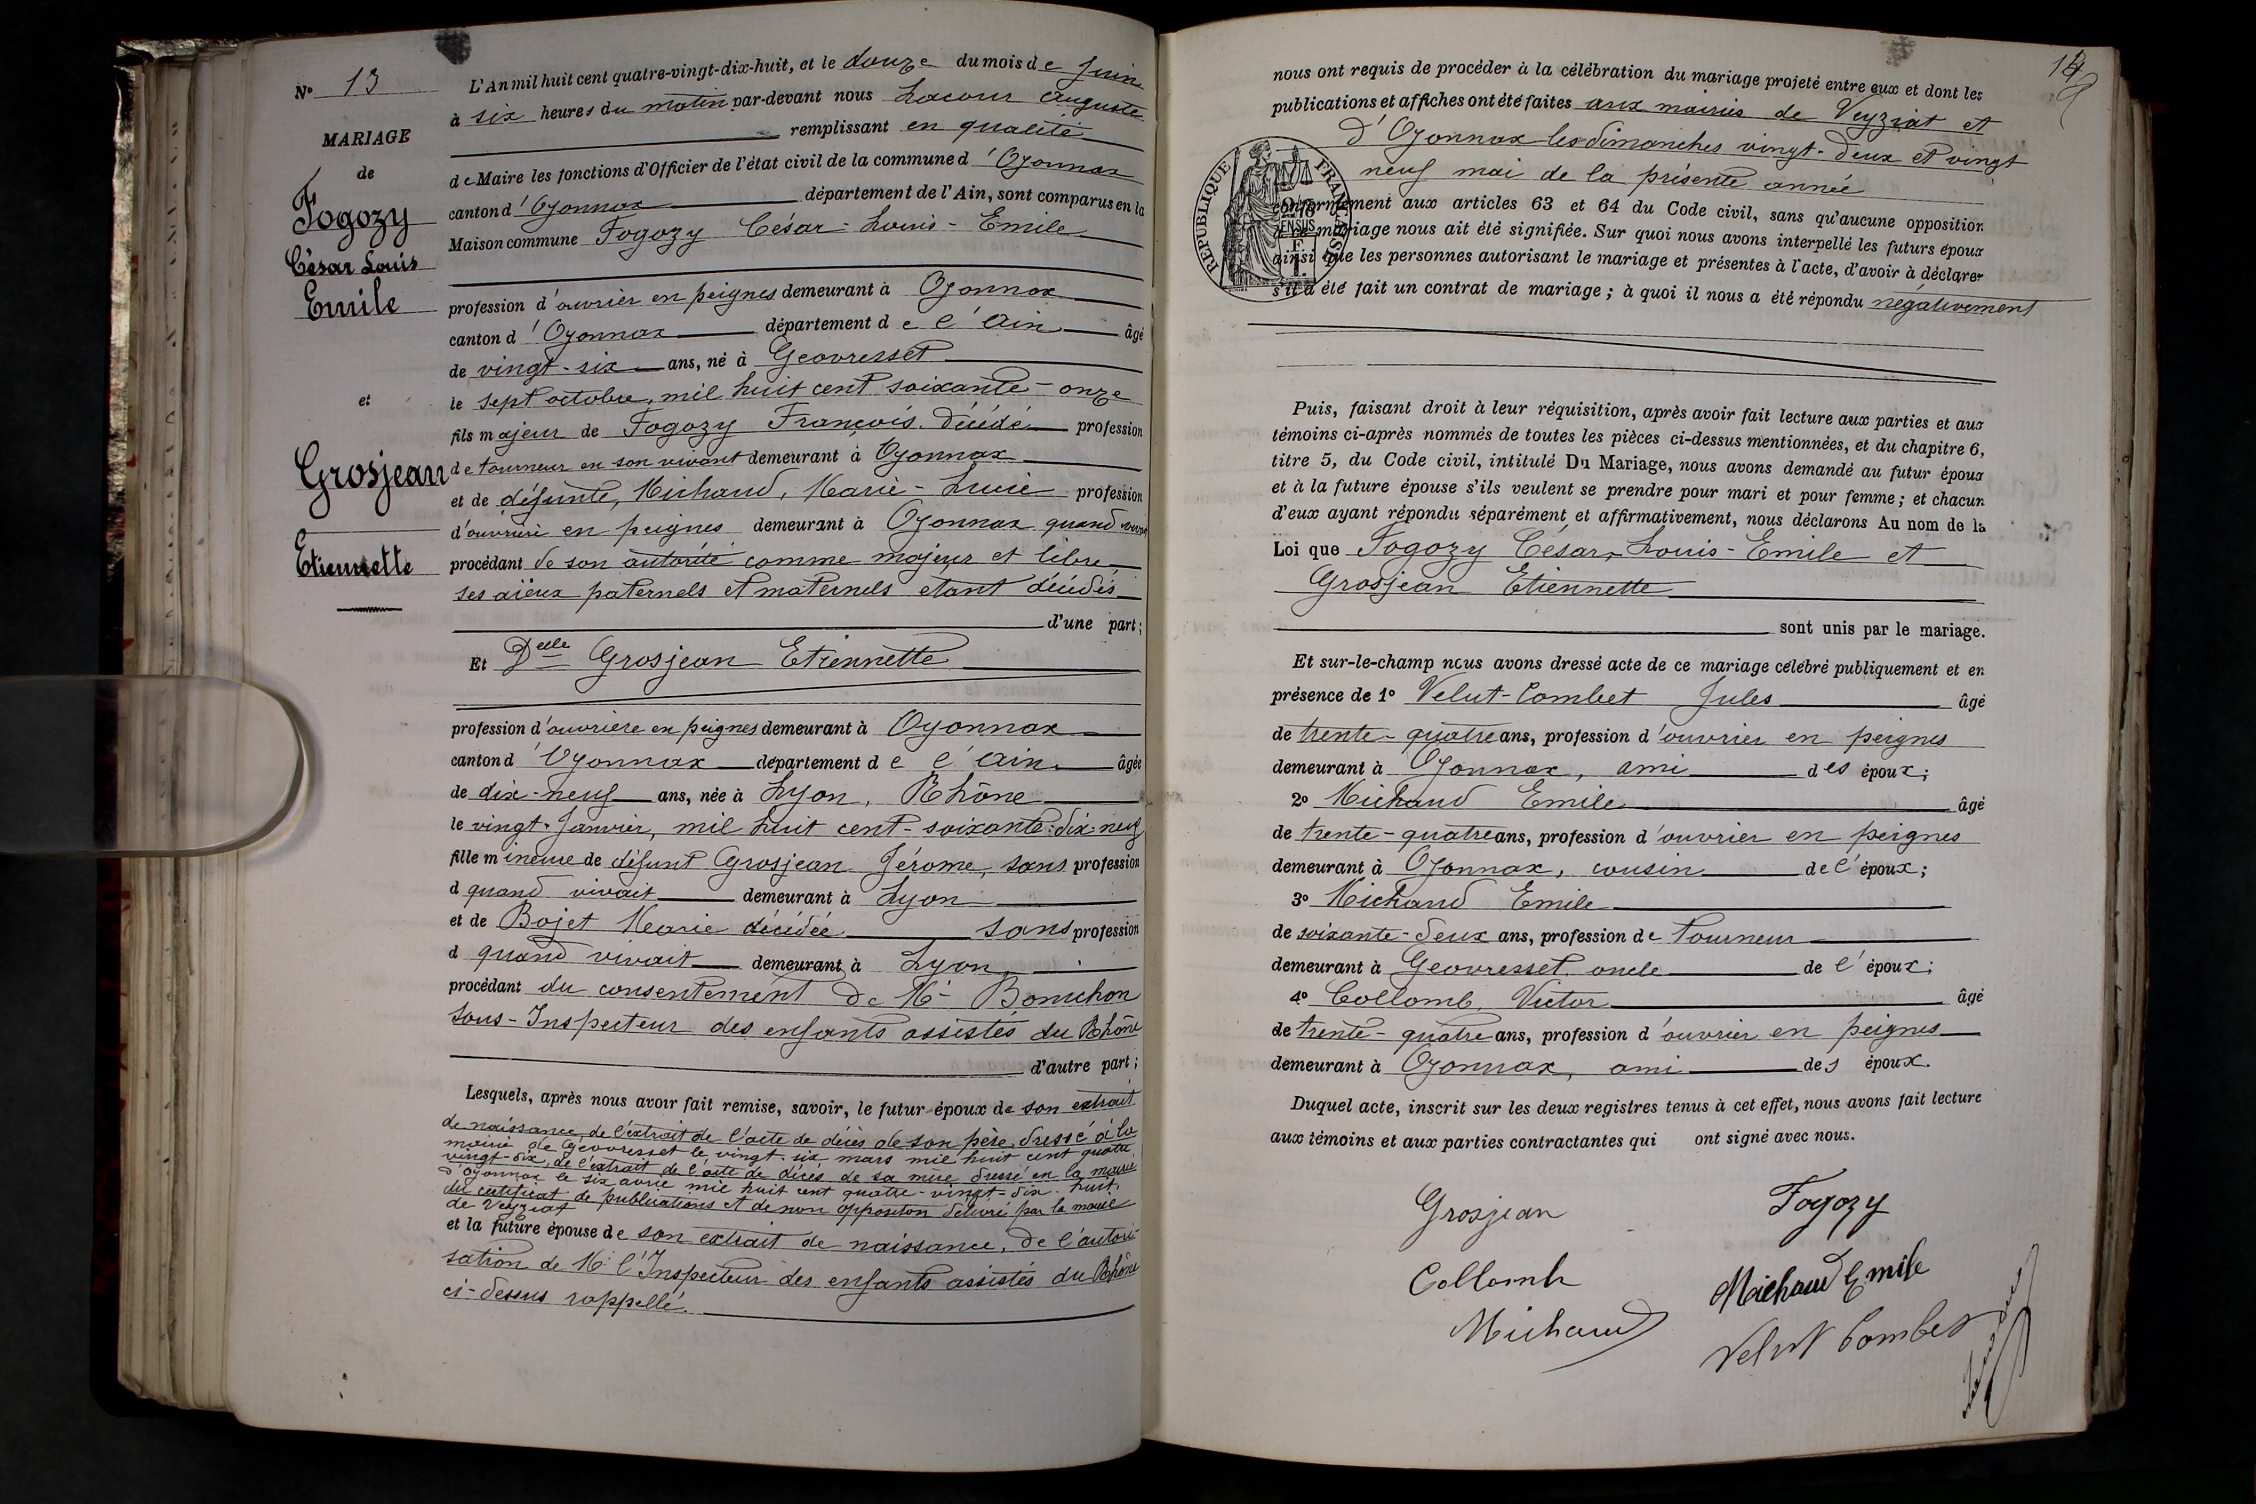 N° 13
MARIAGE
de
Fogozy
César Louis
Emile
et
Grosjean
Etiennette
L'An mil huit cent quatre-vingt-dix-huit, et le douze du mois de Juin
à six heures du matin par-devant nous Lacour Auguste
remplissant en qualité
de Maire les fonctions d'Officier de l'état civil de la commune d'Oyonnax
canton d'Oyonnax département de l'Ain, sont comparus en la
Maison commune Fogozy César-Louis-Emile
profession d'ouvrier en peignes demeurant à Oyonnax
canton d'Oyonnax département de l'Ain âgé
de vingt-six ans, né à Geovresset
le sept octobre, mil huit cent soixante-onze
fils majeur de Fogozy François décédé profession
de tourneur en son vivant demeurant à Oyonnax
et de défunte, Michaud, Marie-Lucie profession
d'ouvrière en peignes demeurant à Oyonnax quand vivait
procédant de son autorité comme majeur et libre,
ses aïeux paternels et maternels étant décédés
d'une part;
Et Delle Grosjean Etiennette
profession d'ouvrière en peignes demeurant à Oyonnax
canton d'Oyonnax département de l'Ain âgée
de dix-neuf ans, née à Lyon, Rhône
le vingt Janvier, mil huit cent-soixante-dix-neuf
fille mineure de défunt Grosjean Jérome, sans profession
d quand vivait demeurant à Lyon
et de Bojet Marie décédée sans profession
d quand vivait demeurant à Lyon
procédant du consentement de Mr Bonichon
Sous-Inspecteur des enfants assistés du Rhône
d'autre part;
Lesquels, après nous avoir fait remise, savoir, le futur époux de son extrait
de naissance, de l'extrait de l'acte de décès de son père, dressé à la
mairie de Geovresset le vingt-six mars mil huit cent quatre
vingt-dix, de l'extrait de l'acte de décès de sa mère dressé en la mairie
d'Oyonnax le six avril mil huit cent quatre-vingt-dix-huit,
du certificat de publications et de non opposition délivré par la mairie
de Veyziat
et la future épouse de son extrait de naissance, de l'autori-
sation de Mr l'Inspecteur des enfants assistés du Rhône
ci-dessus rappellé.
nous ont requis de procéder à la célébration du mariage projeté entre eux et dont les
publications et affiches ont été faites aux mairies de Veyziat et
d'Oyonnax les dimanches vingt-deux et vingt
neuf mai de la présente année
RÉPUBLIQUE FRANÇAISE
conformément aux articles 63 et 64 du Code civil, sans qu'aucune opposition
mariage nous ait été signifiée. Sur quoi nous avons interpellé les futurs époux
ainsi que les personnes autorisant le mariage et présentes à l'acte, d'avoir à déclarer
s'il a été fait un contrat de mariage; à quoi il nous a été répondu négativement
Puis, faisant droit à leur réquisition, après avoir fait lecture aux parties et aux
témoins ci-après nommés de toutes les pièces ci-dessus mentionnées, et du chapitre 6,
titre 5, du Code civil, intitulé Du Mariage, nous avons demandé au futur époux
et à la future épouse s'ils veulent se prendre pour mari et pour femme; et chacun
d'eux ayant répondu séparément et affirmativement, nous déclarons Au nom de la
Loi que Fogozy César-Louis-Emile et
Grosjean Etiennette
sont unis par le mariage.
Et sur-le-champ nous avons dressé acte de ce mariage célébré publiquement et en
présence de 1° Velut-Combet Jules âgé
de trente-quatre ans, profession d'ouvrier en peignes
demeurant à Oyonnax, ami des époux;
2° Michaud Emile âgé
de trente-quatre ans, profession d'ouvrier en peignes
demeurant à Oyonnax, cousin de l'époux;
3° Michaud Emile
de soixante-deux ans, profession de tourneur
demeurant à Geovresset, oncle de l'époux;
4° Collomb, Victor âgé
de trente-quatre ans, profession d'ouvrier en peignes
demeurant à Oyonnax, ami des époux.
Duquel acte, inscrit sur les deux registres tenus à cet effet, nous avons fait lecture
aux témoins et aux parties contractantes qui ont signé avec nous.
Grosjean Fogozy
Collomb Michaud Emile
Michaud Velut Combet